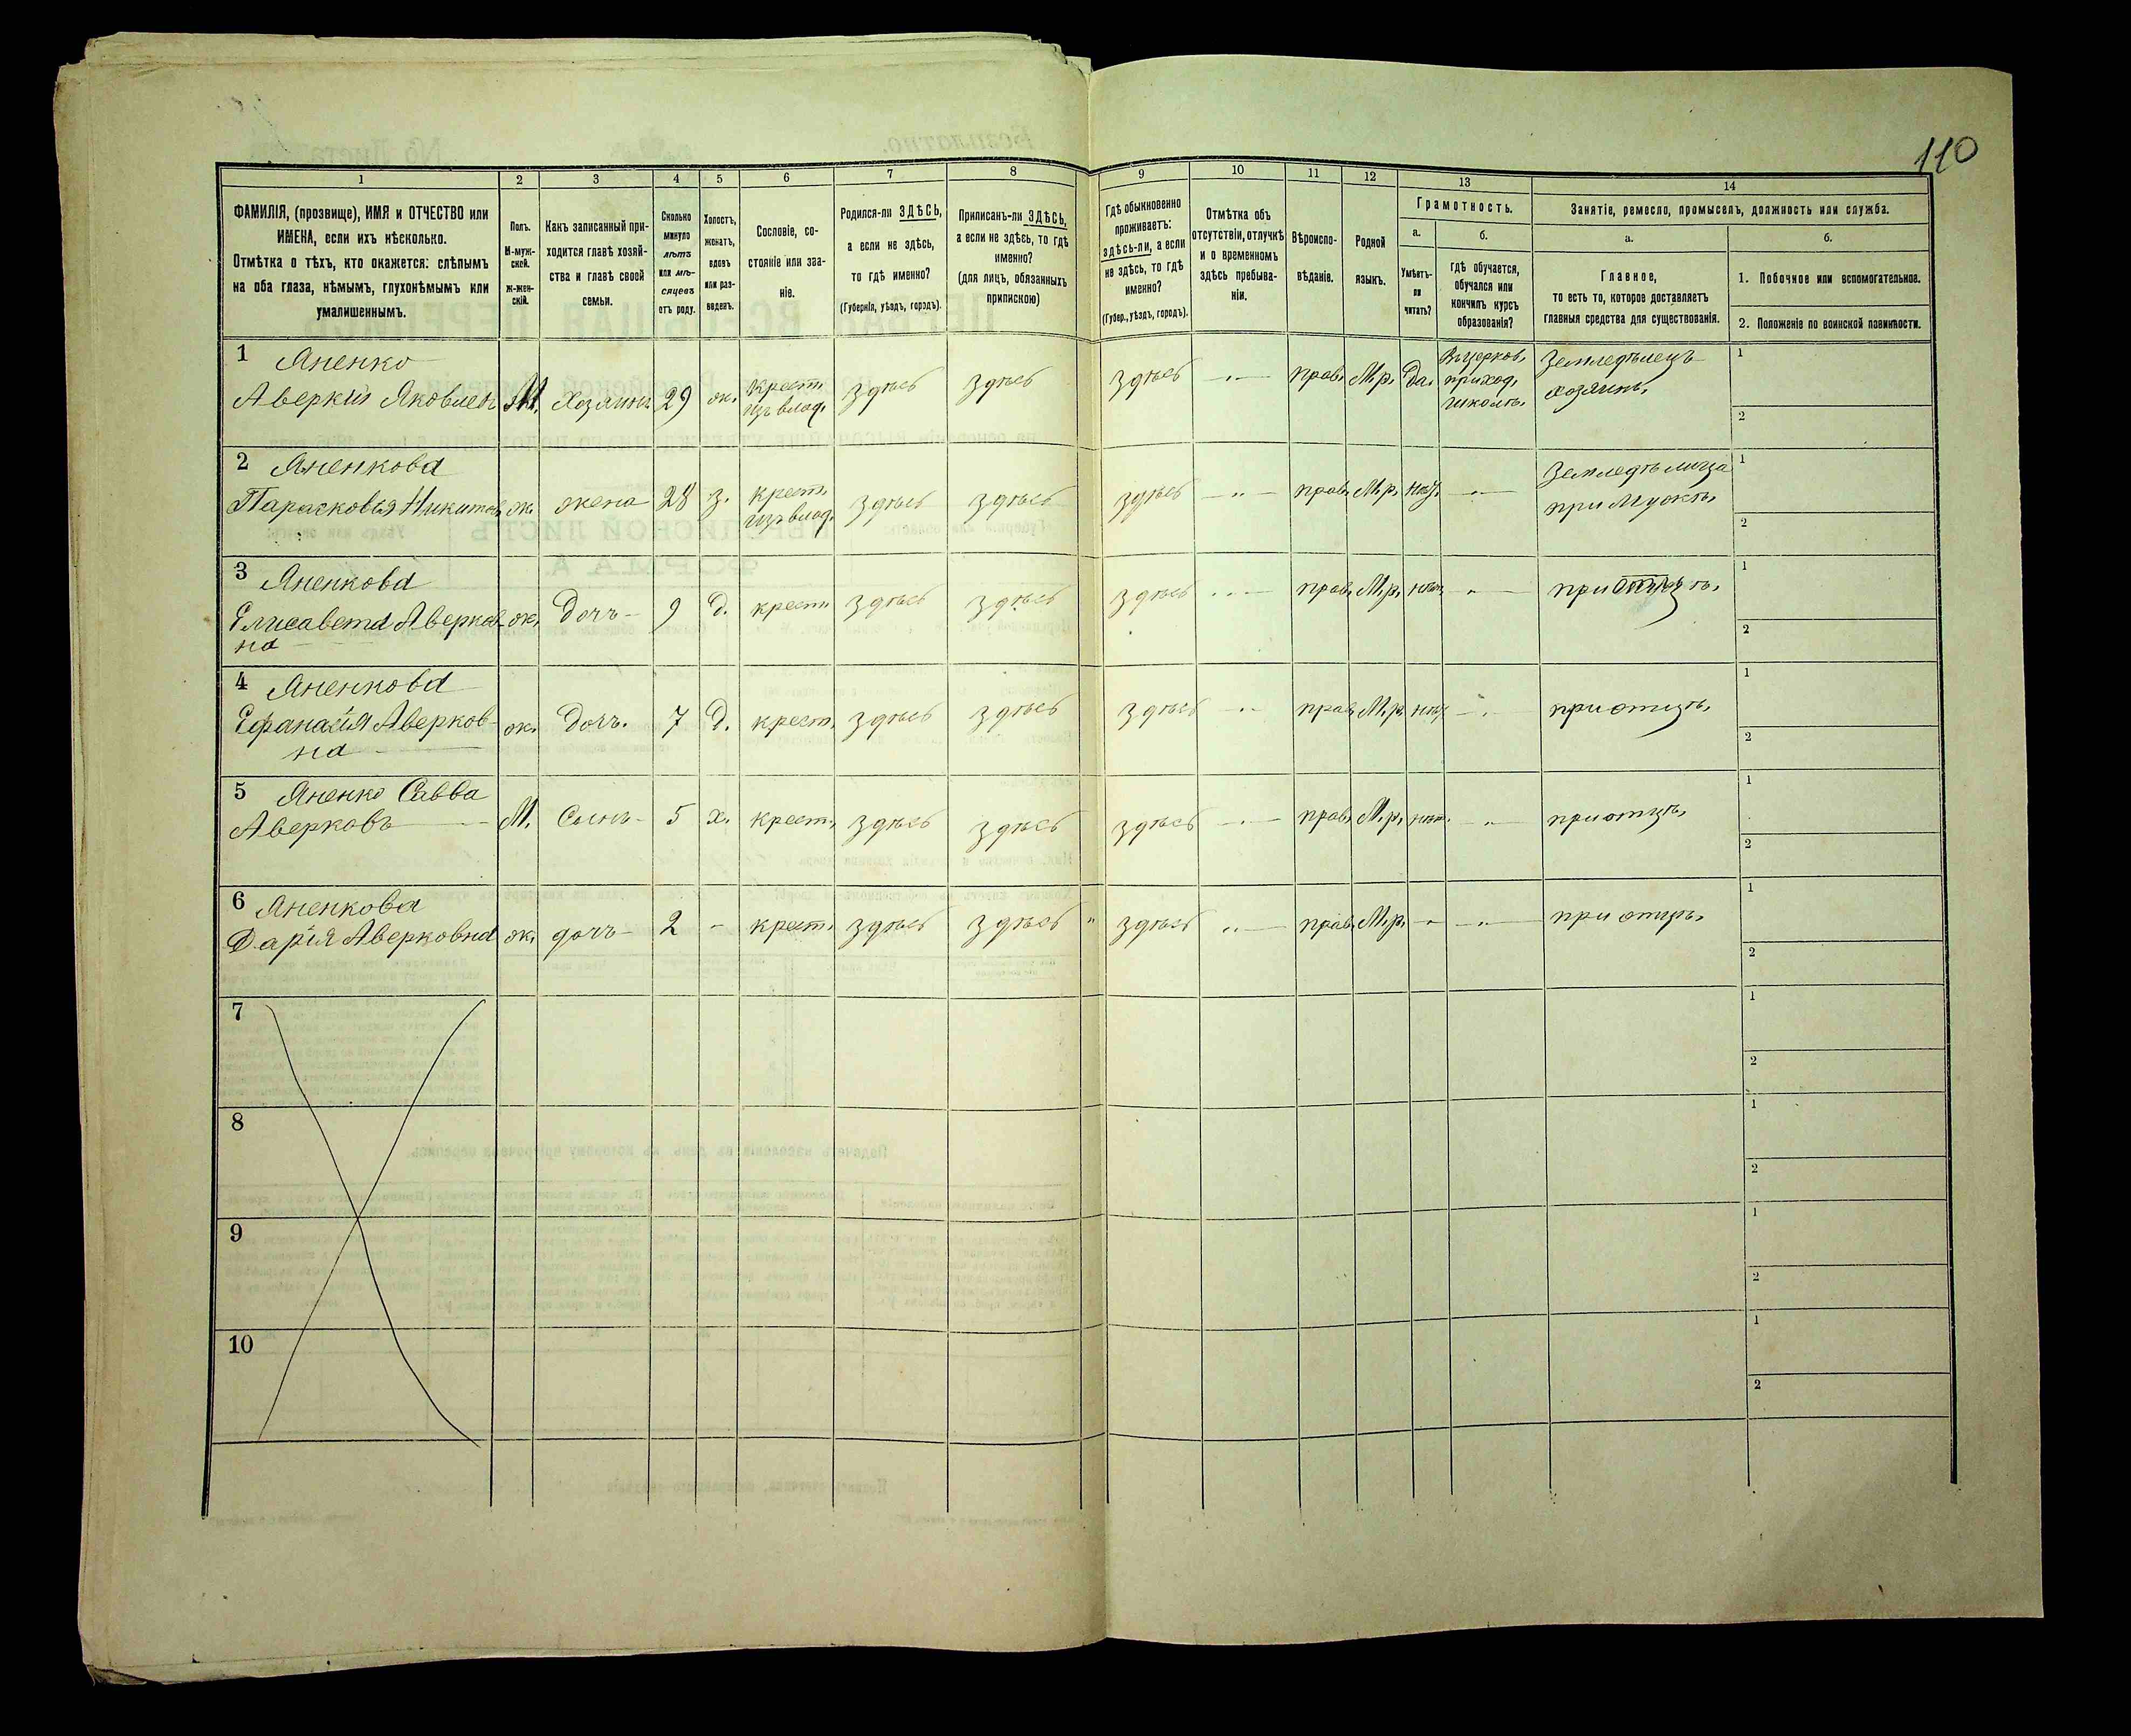 110
1 2 3 4 5 6 7 8 9 10 11 12 13 14
ФАМИЛІЯ, (прозвище), ИМЯ и ОТЧЕСТВО или
ИМЕНА, если ихъ нѣсколько.
Отмѣтка о тѣхъ, кто окажется: слѣпымъ
на оба глаза, нѣмымъ, глухонѣмымъ или
умалишеннымъ.
Полъ.
М-муж-
ской.
ж-жен-
скій.
Какъ записанный при-
ходится главѣ хозяй-
ства и главѣ своей
семьи.
Сколько
минуло
лѣтъ
или мѣ-
сяцевъ
отъ роду.
Холостъ,
женатъ,
вдовъ
или раз-
веденъ.
Сословіе, со-
стояніе или зва-
ніе.
Родился-ли ЗДѢСЬ,
а если не здѣсь,
то гдѣ именно?
(Губернія, уѣздъ, городъ).
Приписанъ-ли ЗДѢСЬ,
а если не здѣсь, то гдѣ
именно?
(для лицъ, обязанныхъ
припискою)
Гдѣ обыкновенно
проживаетъ:
здѣсь-ли, а если
не здѣсь, то гдѣ
именно?
(Губер., уѣздъ, городъ).
Отмѣтка объ
отсутствіи, отлучкѣ
и о временномъ
здѣсь пребыва-
ніи.
Вѣроиспо-
вѣданіе.
Родной
языкъ.
Грамотность.
а.
Умѣетъ-
ли
читать?
б.
гдѣ обучается,
обучался или
кончилъ курсъ
образованія?
Занятіе, ремесло, промыселъ, должность или служба.
а.
Главное,
то есть то, которое доставляетъ
главныя средства для существованія.
б.
1. Побочное или вспомогательное.
2. Положеніе по воинской повинности.
1 Яненко
Аверкій Яковлевъ М. Хозяинъ 29 ж. крест. изъ влад. здѣсь здѣсь здѣсь — " — прав. М.р. Да. Въ церков. приход. школѣ. Земледѣлецъ хозяинъ. 1 2
2 Яненкова
Парасковья Никитов ж. жена 28 з. крест. изъ влад. здѣсь здѣсь здѣсь — " — прав. М.р. нѣт. — " — при мужѣ. 1 2
3 Яненкова
Елисавета Аверков- ж. Дочь — 9 д. крест. здѣсь здѣсь здѣсь — " — прав. М.р. нѣт. " — при 1 2
на
4 Яненкова
Аверков- ж. Дочь. 7 д. крест. здѣсь здѣсь здѣсь — " — прав. М.р. нѣт. — " — при отцѣ. 1 2
на
5 Яненко Савва
Аверковъ — М. Сынъ — 5 х. крест. здѣсь здѣсь здѣсь — " — прав. М.р. нѣт. — " — при отцѣ. 1 2
6 Яненкова
Дарія Аверковна ж. дочь — 2 — крест. здѣсь здѣсь " здѣсь " — прав. М.р. — " — " — при отцѣ. 1 2
7 1 2
8 1 2
9 1 2
10 1 2